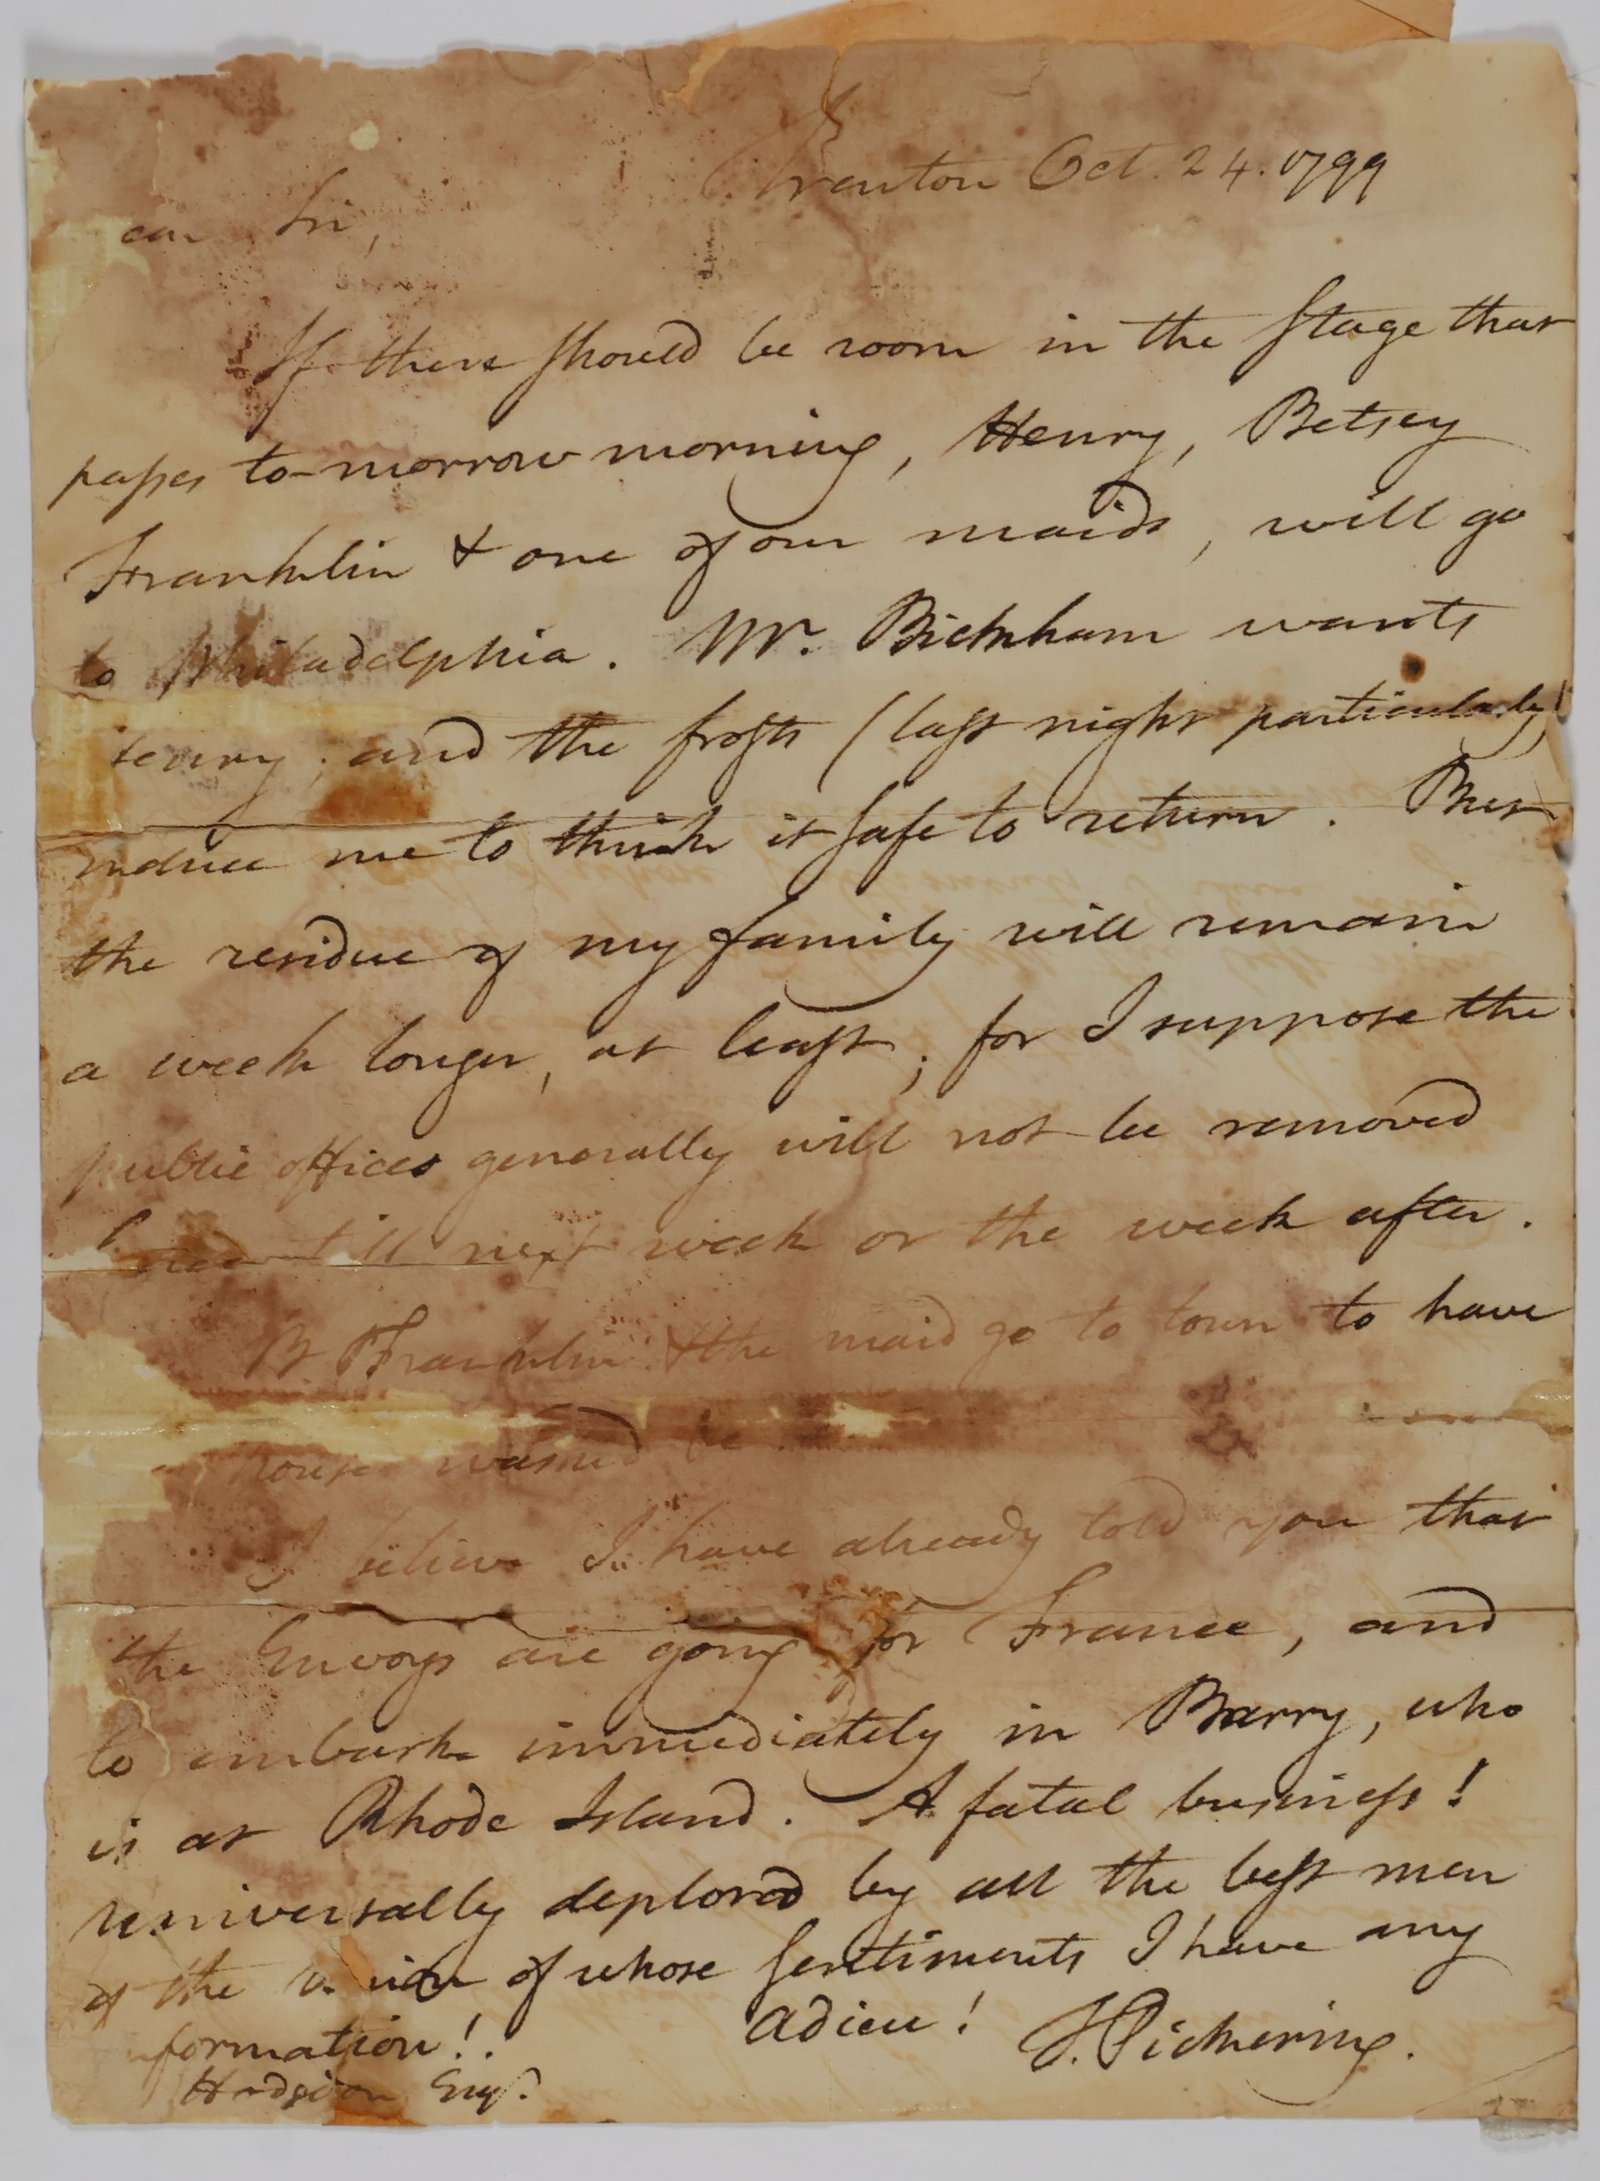 Trenton Oct. 24. 1799
ear Sir,
If there should be room in the stage that
passes to-morrow morning, Henry, Betsey
Franklin & one of our maids, will go
to Philadelphia. Mr. Bickham wants
Henry; and the frosts (last night particularly)
induce me to think it safe to return. But
the residue of my family will remain
a week longer, at least; for I suppose the
public offices generally will not be removed
till next week or the week after.
B Franklin & the maid go to town to have
house washed &c
I believe I have already told you that
the Envoys are going for France, and
to embark immediately in Barry, who
is at Rhode Island. A fatal business!
universally deplored by all the best men
of the union of whose sentiments I have any
formation! Adieu! T. Pickering.
Hodgdon Esqr.